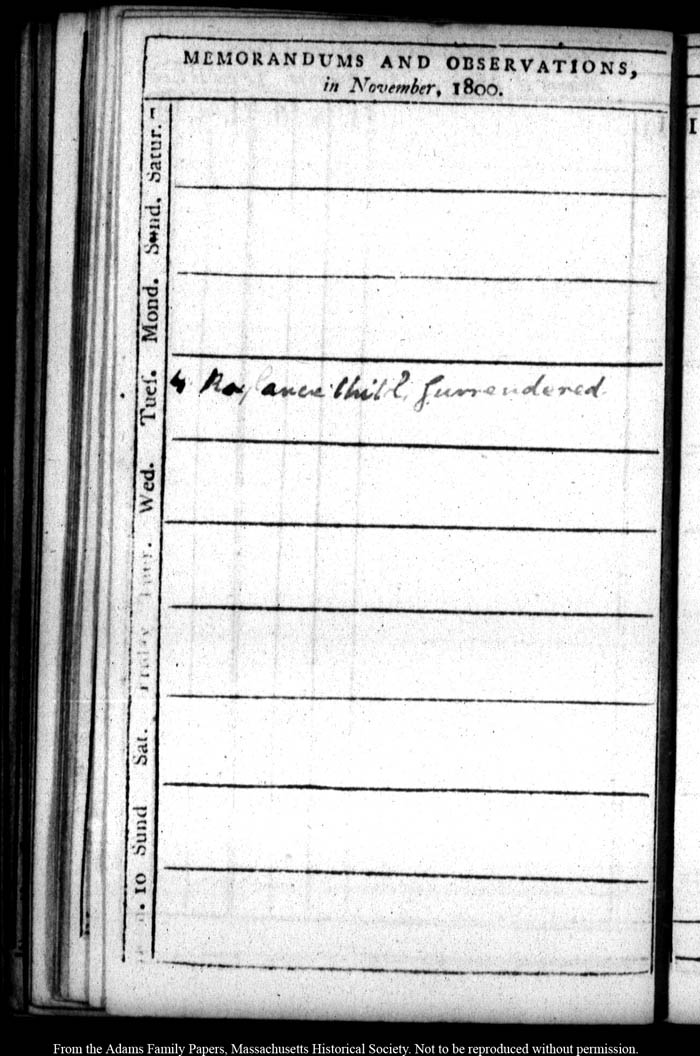 MEMORANDUMS AND OBSERVATIONS,
in November, 1800.
Satur. 1
Sund.
Mond.
Tues.
4 Surrendered.
Wed.
Thur.
Friday
Sat.
Sund
10
From the Adams Family Papers, Massachusetts Historical Society. Not to be reproduced without permission.